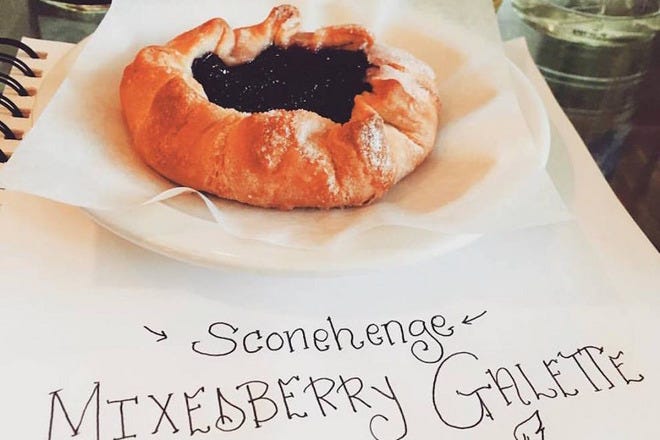 Sconehenge
MIXEDBERRY GALETTE